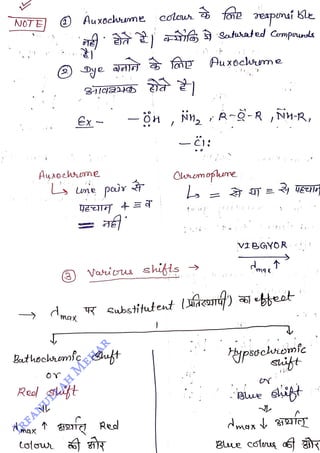 NOTE ① Auxochrome colour के लिए responsible
नही होते है। क्योंकि ये Saturated Compounds
है।
② Dye बनाने के लिए Auxochrome
आवश्यक होते है।
Ex- - ÖH , N̈H₂ , R-Ö-R , N̈H-R,
- C̈l:
Auxochrome
↳ lone pair से
पहचान + ≡ व
= नही
Chromophore
↳ = से या ≡ से पहचान
VIBGYOR
λmax ↑
③ Various shifts →
→ λmax पर substitutent (प्रतिस्थापी) का effect
Bathochromic shift
or
Red shift
⇓
λmax ↑ अर्थात् Red
colour की ओर
Hypsochromic
shift
or
Blue shift
⇓
λmax ↓ अर्थात्
Blue colour की ओर
IRFANULLAH MEHAR